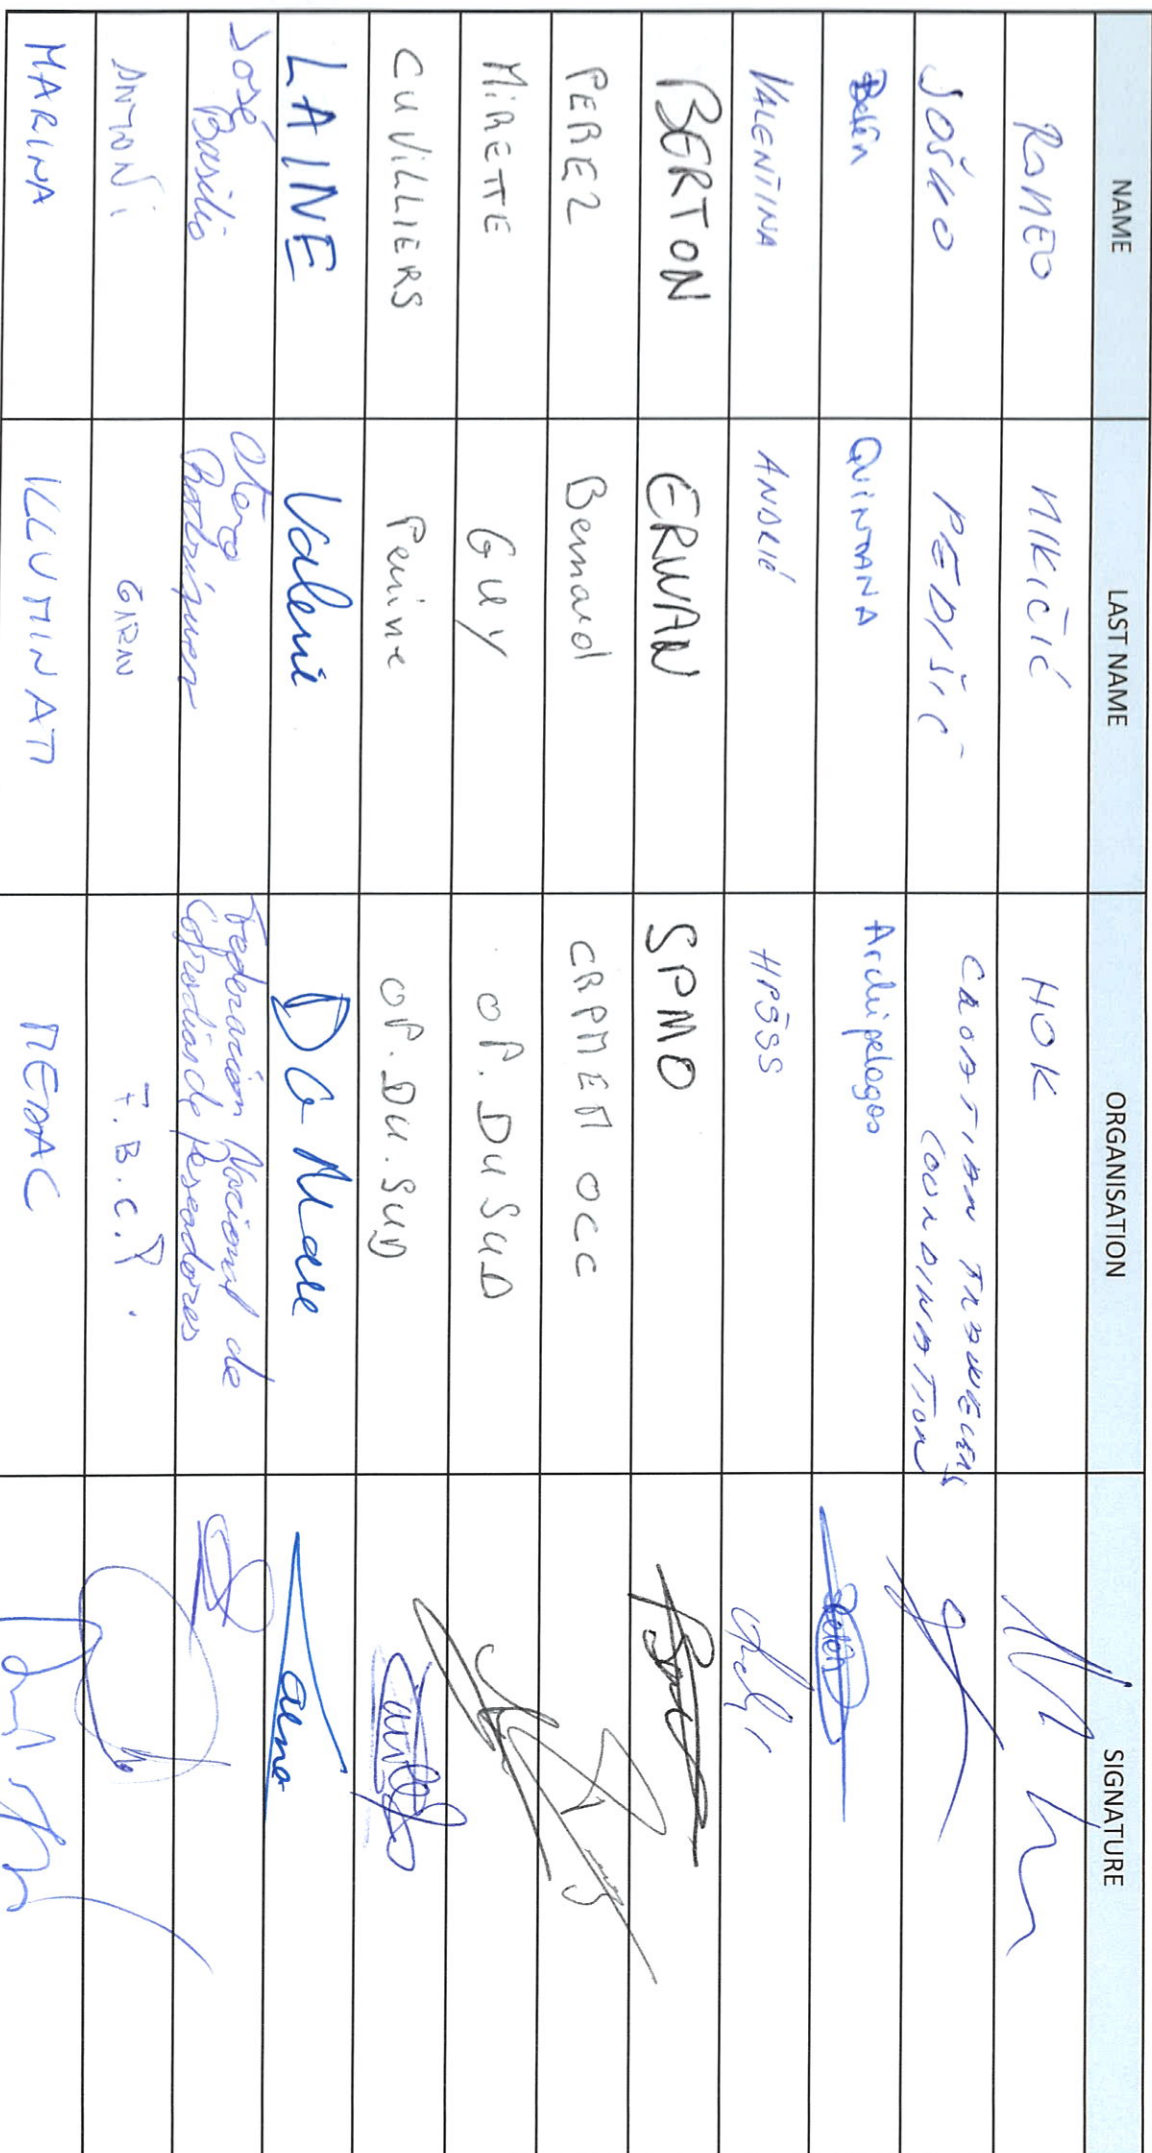 NAME LAST NAME ORGANISATION SIGNATURE
ROMEO NIKIČIĆ HOK
JOŠKO PEDIŠIĆ CROATIAN TRAWLERS
COORDINATION
Belén QUINTANA Archipelagos
VALENTINA ANDRIĆ HPŠSS
BERTON ERWAN SPMO
PEREZ Bernard CRPMEM OCC
MiRETTE GUY OP. DU SUD
CUViLLIERS Perrine OP. DU. SUD
LAINE Valerie DG Mare
José Otero Federación Nacional de
Basilio Rodríguez Cofradías de Pescadores
ANTONi GARAU F.B.C.P.
MARINA ILLUMINATI MEDAC